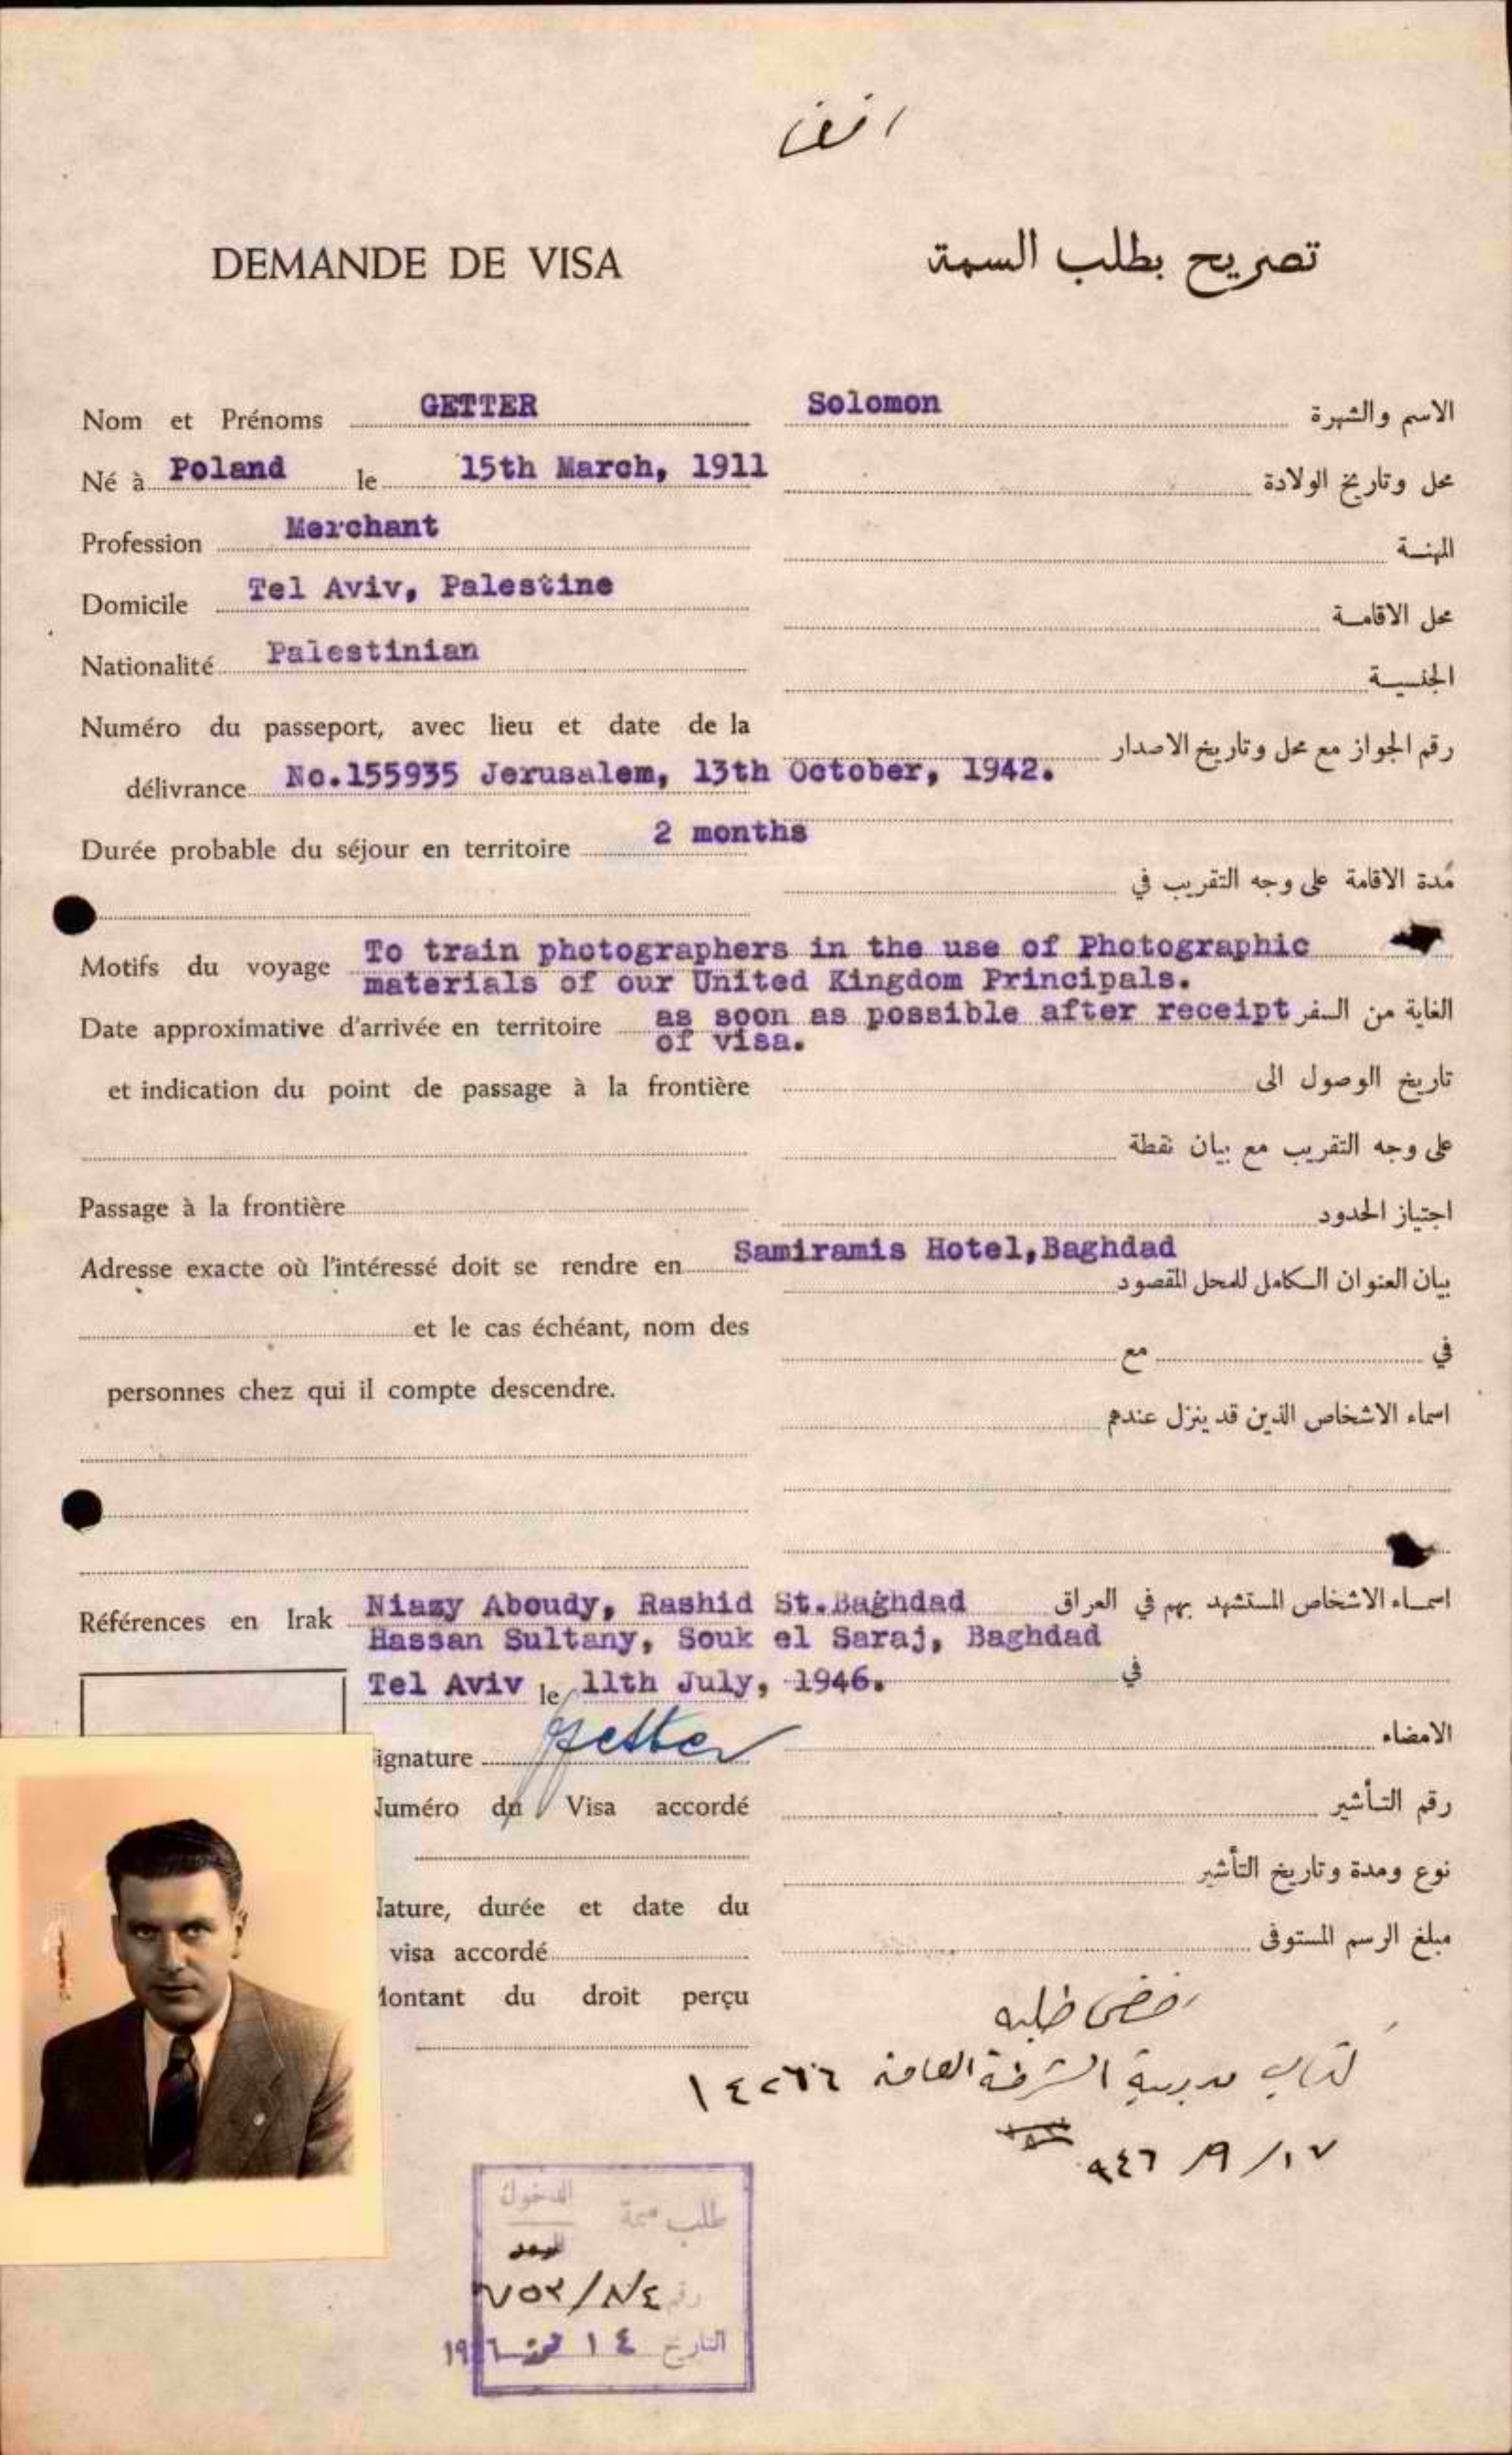 DEMANDE DE VISA
تصريح بطلب السمة
Nom et Prénoms GETTER Solomon الاسم والشهرة
Né à Poland le 15th March, 1911 محل وتاريخ الولادة
Profession Merchant المهنة
Domicile Tel Aviv, Palestine محل الاقامة
Nationalité Palestinian الجنسية
Numéro du passeport, avec lieu et date de la
رقم الجواز مع محل وتاريخ الاصدار
délivrance No.155935 Jerusalem, 13th October, 1942.
Durée probable du séjour en territoire 2 months
مدة الاقامة على وجه التقريب في
Motifs du voyage To train photographers in the use of Photographic
materials of our United Kingdom Principals.
الغاية من السفر
Date approximative d'arrivée en territoire as soon as possible after receipt
of visa.
et indication du point de passage à la frontière
تاريخ الوصول الى
على وجه التقريب مع بيان نقطة
Passage à la frontière اجتياز الحدود
Adresse exacte où l'intéressé doit se rendre en Samiramis Hotel, Baghdad
بيان العنوان الكامل للمحل المقصود
et le cas échéant, nom des
في مع
personnes chez qui il compte descendre.
اسماء الاشخاص الذين قد ينزل عندهم
Références en Irak Niazy Aboudy, Rashid St.Baghdad اسماء الاشخاص المستشهد بهم في العراق
Hassan Sultany, Souk el Saraj, Baghdad
Tel Aviv le 11th July, 1946. في
ignature Getter الامضاء
uméro du Visa accordé رقم التأشير
نوع ومدة وتاريخ التأشير
ature, durée et date du
visa accordé مبلغ الرسم المستوفى
ontant du droit perçu
رفض طلبه
كتاب مديرية الشرطة العامة ١٤٢٦٦
١٧/ ٩/ ٩٤٦
الدخول
طلب سمة
رقم ٧٥٣/٨/٤
التاريخ ١٤ تموز ١٩٤٦